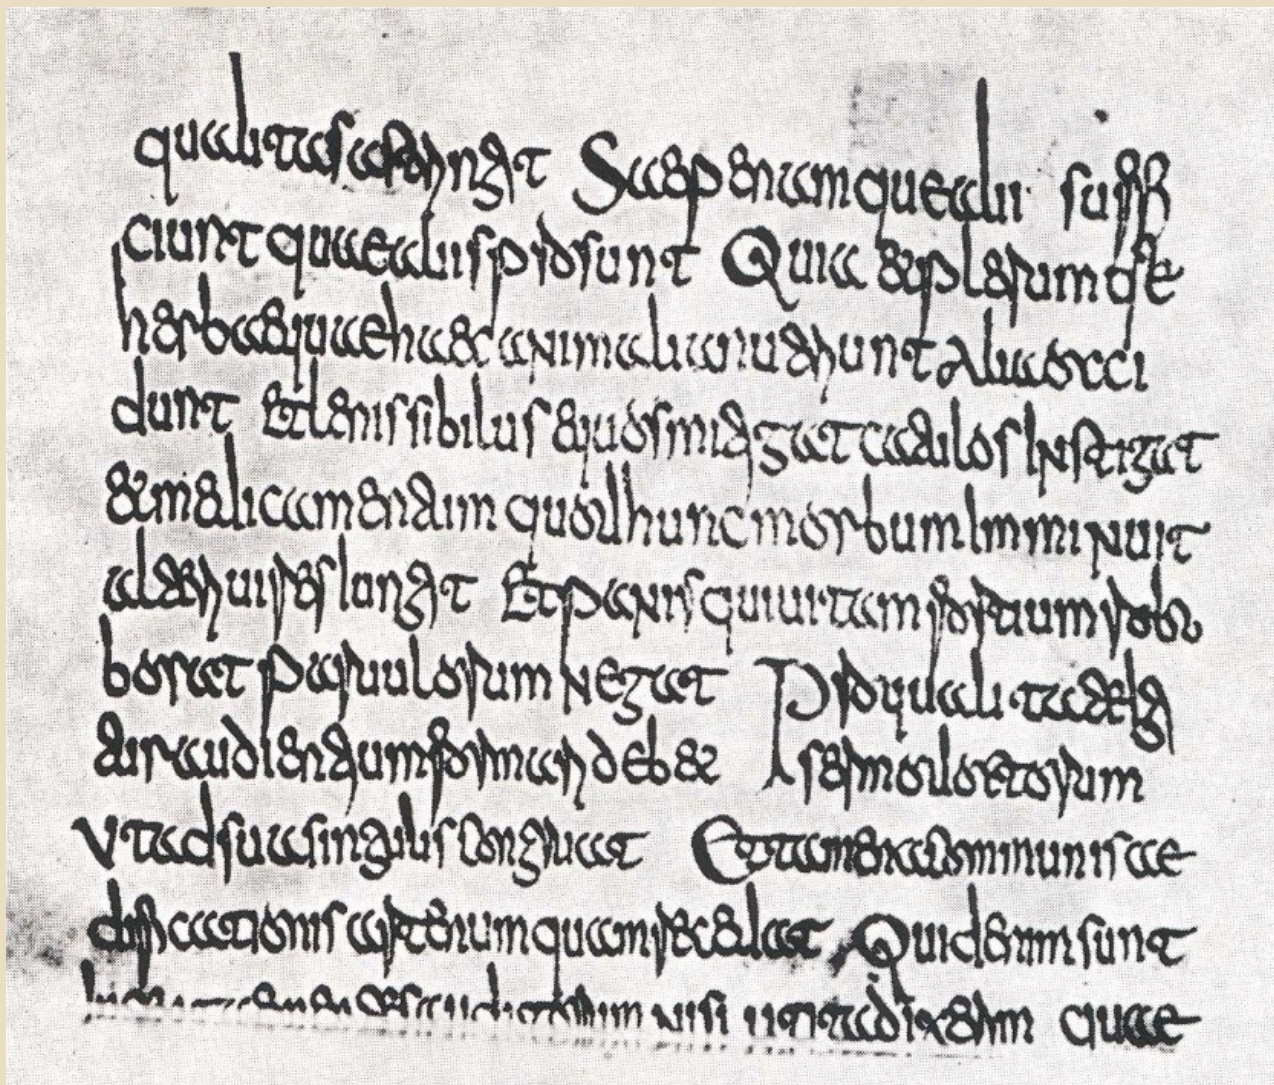 qualitas astringit Saepe namque alii suffi
ciunt quae aliis prosunt Quia et plerumque
herbae quae haec animalia nutriunt Alia occi
dunt Et lenis sibilus equos mitigat catulos Instigat
et medicamentum quod hunc morbum Imminuit
alteri uires Iungit Et panis qui uitam fortium robo
borat paruulorum negat Pro qualitate Ig
itur audientium formari debet sermo doctorum
Ut ad sua singulis congruat Et tamen a communis ae
dificationis arte numquam recedat Quid enim sunt
auditorum nisi ut ita dixerim quae